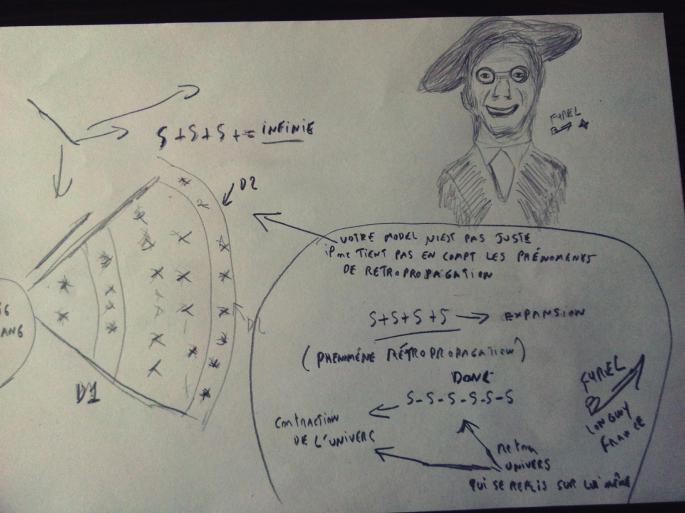 S+S+S+= INFINIE
FYREL
D2
VOTRE MODEL N'EST PAS JUSTE
IP ME TIENT PAS EN COMPT LES PHÉNOMENTS
DE RETROPROPAGATION
S+S+S+S → EXPANSION
(PHENOMÉNE RÉTROPROPAGATION)
DONC
S-S-S-S-S-S
CONTRACTION
DE L'UNIVERC
UNIVERS
QUI SE REPLIS SUR LUI MÊME
FYREL
LONGWY
FRANCE
ANG
D1